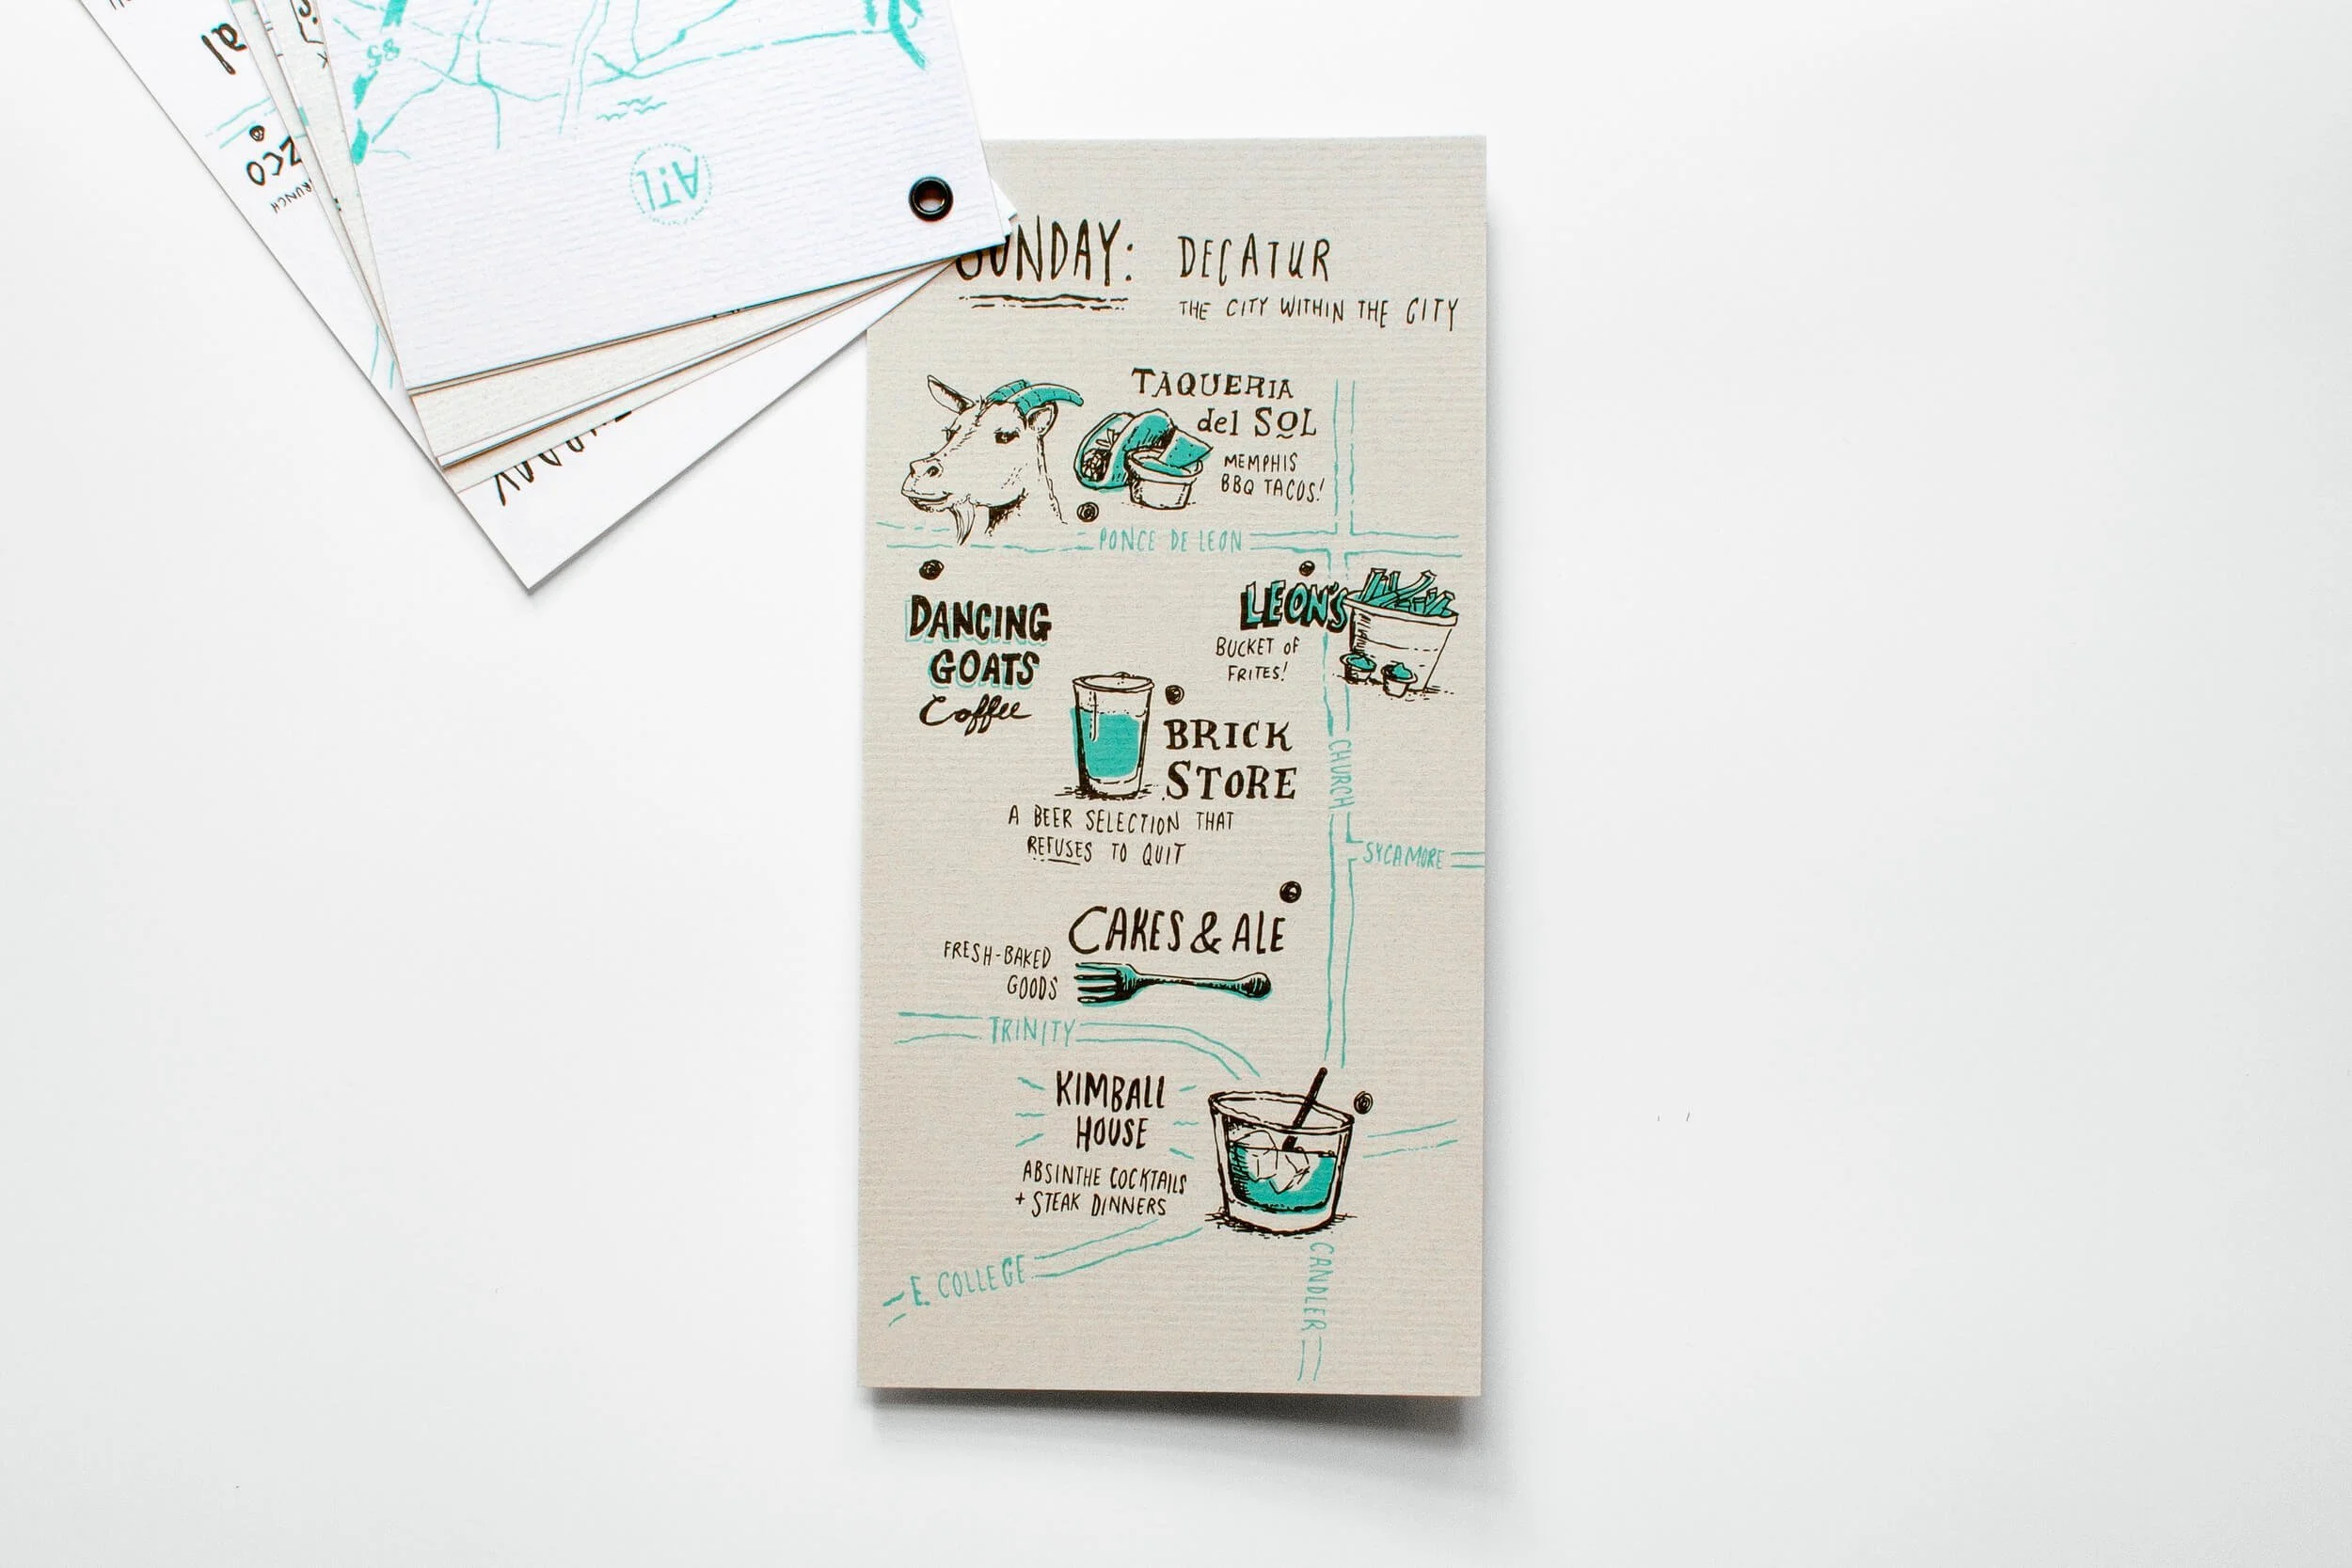 85
ATL
SUNDAY: DECATUR
THE CITY WITHIN THE CITY
TAQUERIA
del SOL
MEMPHIS
BBQ TACOS!
PONCE DE LEON
DANCING
GOATS
Coffee
LEON'S
BUCKET OF
FRITES!
BRICK
STORE
A BEER SELECTION THAT
REFUSES TO QUIT
CHURCH
SYCAMORE
CAKES & ALE
FRESH-BAKED
GOODS
TRINITY
KIMBALL
HOUSE
ABSINTHE COCKTAILS
+ STEAK DINNERS
E. COLLEGE
CANDLER